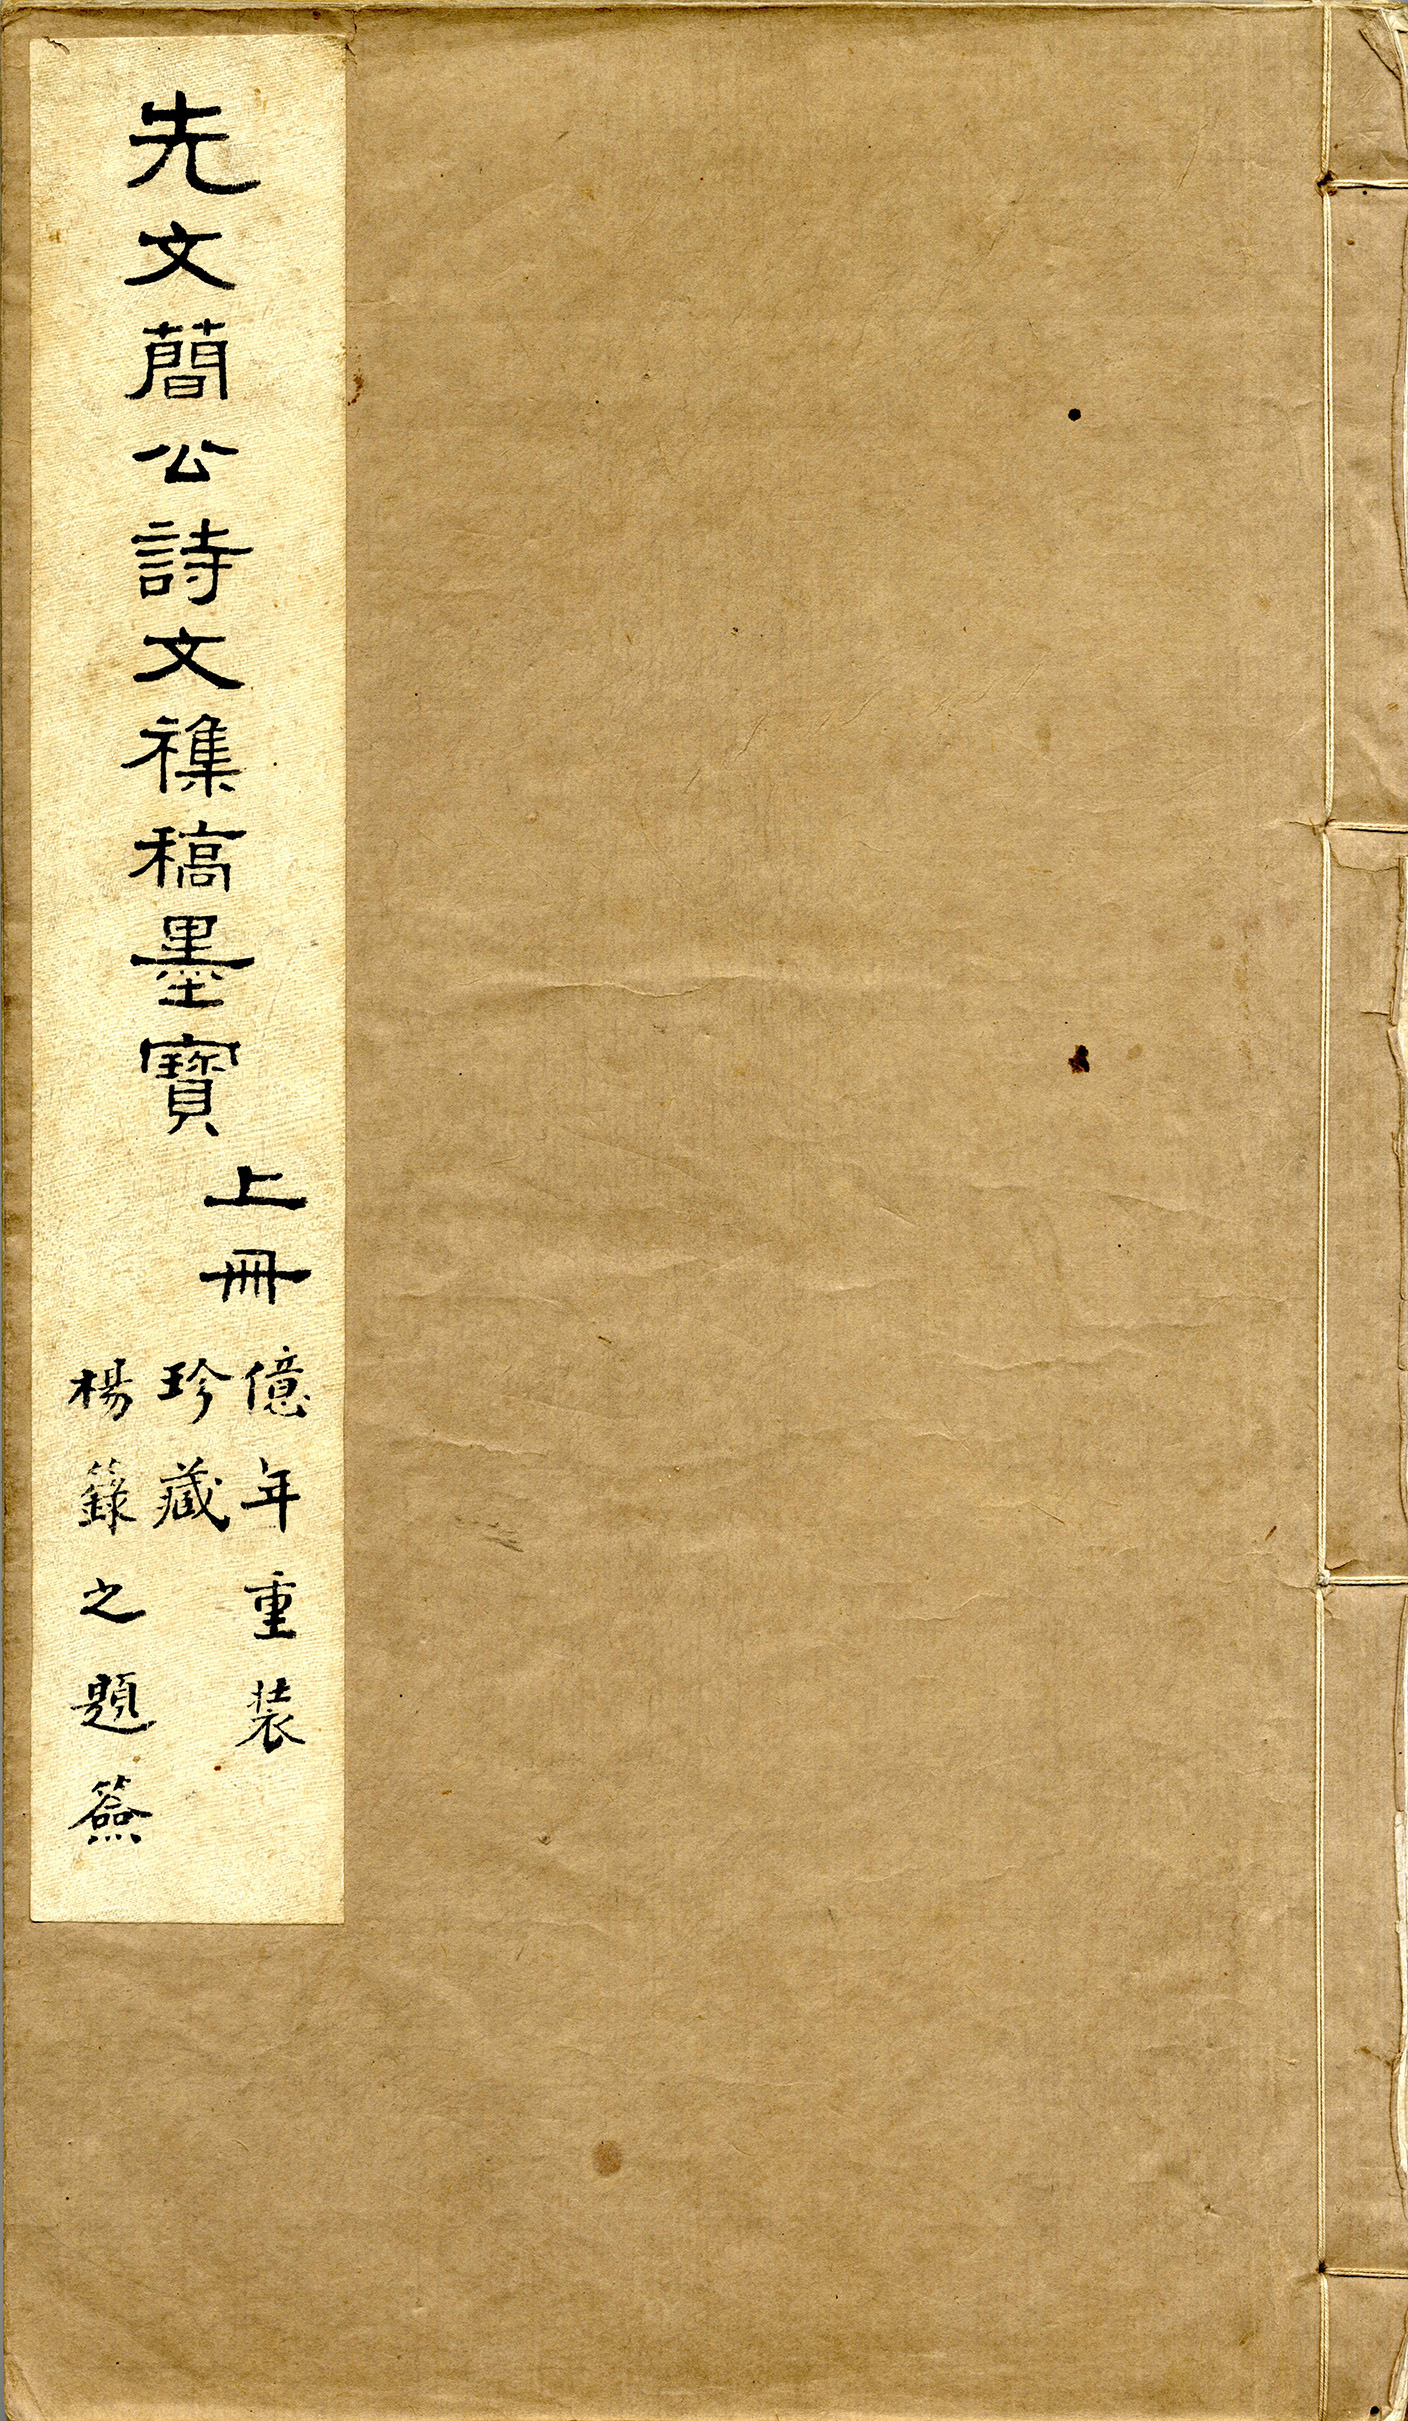 先文簡公詩文襍稿墨寶
上冊
億年重裝
珍藏
楊籙之題簽